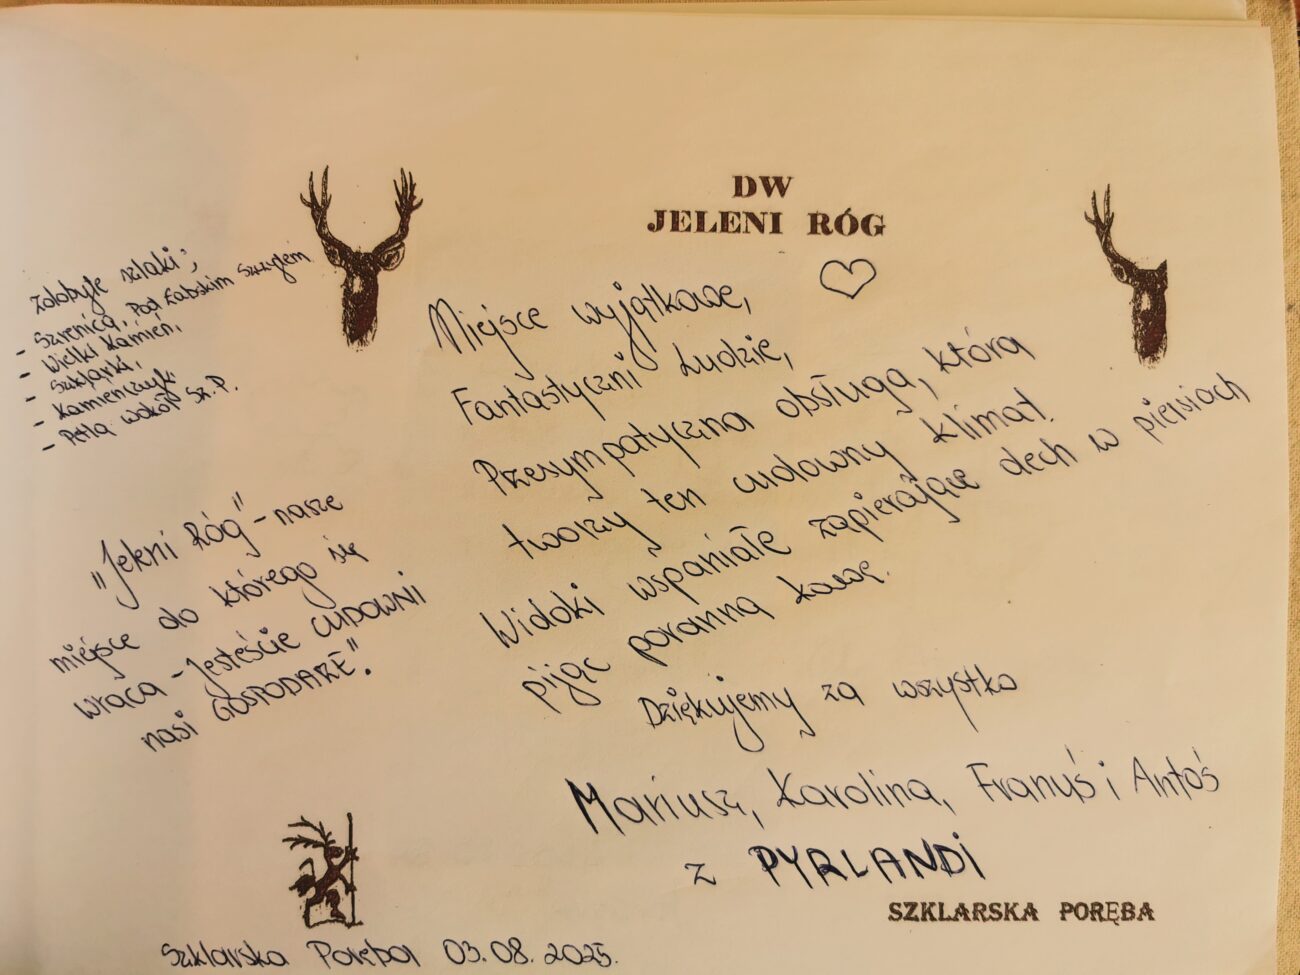 DW
JELENI RÓG
zdobyte szlaki;
- Szrenica, Pod Łabskim Szczytem
- Wielki Kamień,
- Szklarki,
- Kamieńczyk,
- Pętla wokół Sz. P.
Miejsce wyjątkowe,
Fantastyczni Ludzie,
Przesympatyczna obsługa, która
tworzy ten cudowny klimat.
Widoki wspaniałe zapierające dech w piersiach
pijąc poranną kawę.
Dziękujemy za wszystko
Mariusz, Karolina, Franuś i Antoś
z PYRLANDI
„Jeleni Róg" - nasze
miejsce do którego się
wraca - Jesteście CUDOWNI
nasi GOSPODARZE".
SZKLARSKA PORĘBA
Szklarska Poręba 03.08.2025.